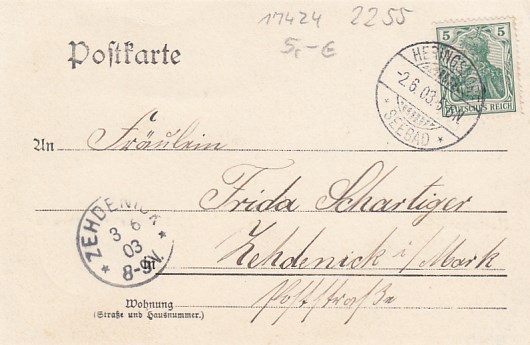 17424 2255
5,-€
Postkarte
5 5
DEUTSCHES REICH
HERINGSDORF
2.6.03.
* SEEBAD *
An Fräulein
Frida Schartiger
* ZEHDENICK *
3 6
03
8-9V.
in Zehdenick i/Mark
Poststraße
Wohnung
(Straße und Hausnummer.)